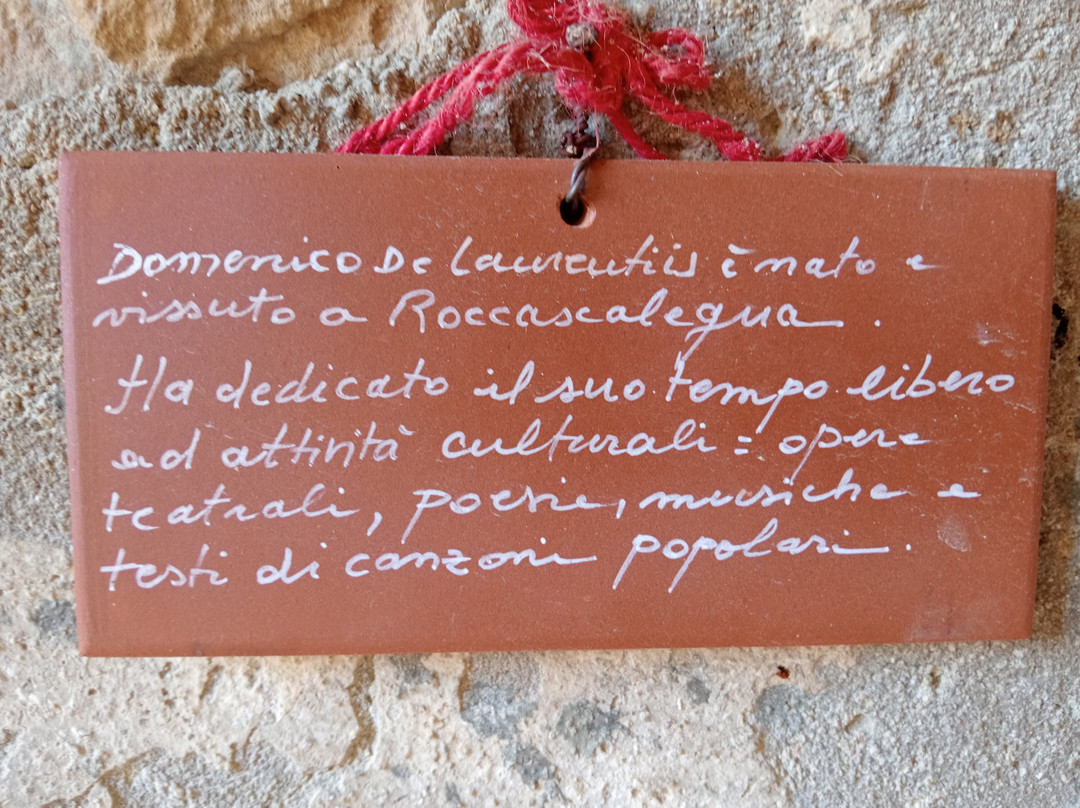 Domenico De Laurentiis è nato e
vissuto a Roccascalegna.
Ha dedicato il suo tempo libero
ad attività culturali: opere
teatrali, poesie, musiche e
testi di canzoni popolari.